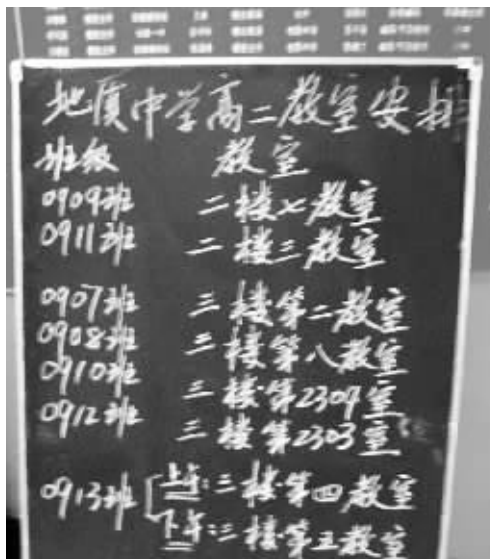 地质中学高二教室安排
班级 教室
0909班 二楼七教室
0911班 二楼三教室
0907班 三楼第二教室
0908班 三楼第八教室
0910班 三楼第2304室
0912班 三楼第2303室
0913班 上午:三楼第四教室
下午:三楼第五教室